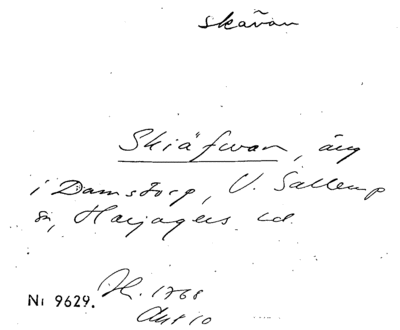 skävan
Skiäfwan, äng
i Damstorp, V. Sallerup
sn, Harjagers hd.
Ni 9629. H. 1768
Akt 10